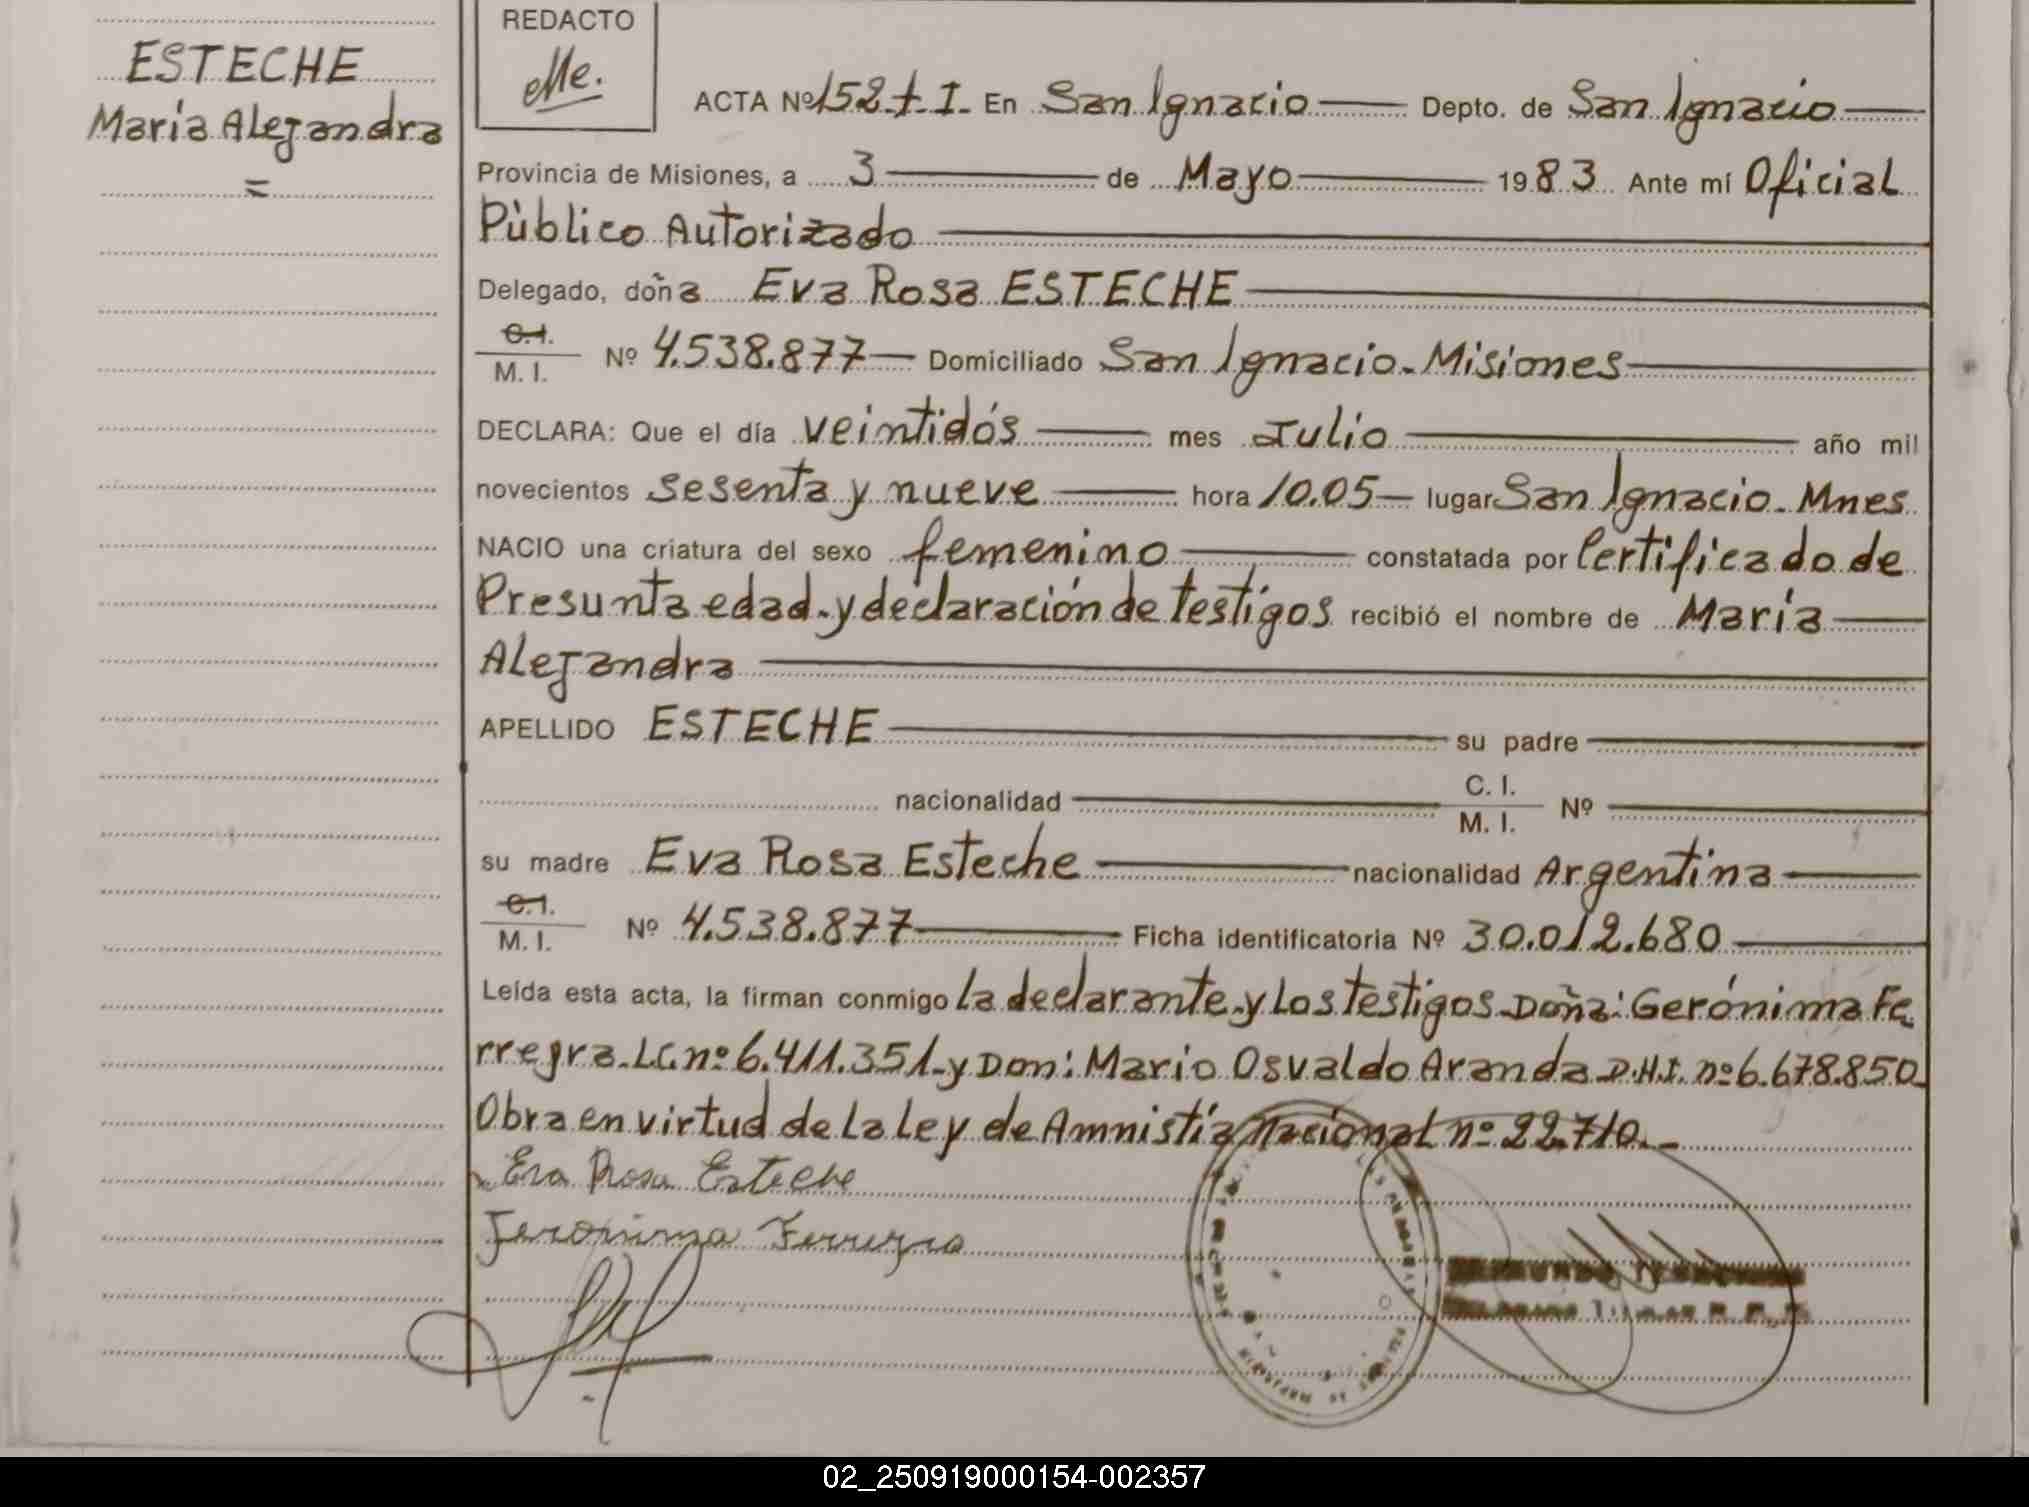 ESTECHE
María Alejandra
=
REDACTO
ACTA Nº 152 t. I. En San Ignacio Depto. de San Ignacio
Provincia de Misiones, a 3 de Mayo 1983 Ante mí Oficial
Público Autorizado
Delegado, doña Eva Rosa ESTECHE
C.I.
M. I. Nº 4.538.877 Domiciliado San Ignacio-Misiones
DECLARA: Que el día veintidós mes Julio año mil
novecientos sesenta y nueve hora 10.05 lugar San Ignacio-Mnes.
NACIO una criatura del sexo femenino constatada por Certificado de
Presunta edad-y declaración de testigos recibió el nombre de María
Alejandra
APELLIDO ESTECHE su padre
nacionalidad C. I.
M. I. Nº
su madre Eva Rosa Esteche nacionalidad Argentina
C.I.
M. I. Nº 4.538.877 Ficha identificatoria Nº 30.012.680
Leída esta acta, la firman conmigo la declarante-y los testigos-Doña: Gerónima Fe
rreyra-L.C. nº 6.411.351-y Don: Mario Osvaldo Aranda D.N.I. nº 6.678.850
Obra en virtud de la Ley de Amnistía Nacional nº 22.710.-
Eva Rosa Esteche
Jeronima Ferreyra
02_250919000154-002357